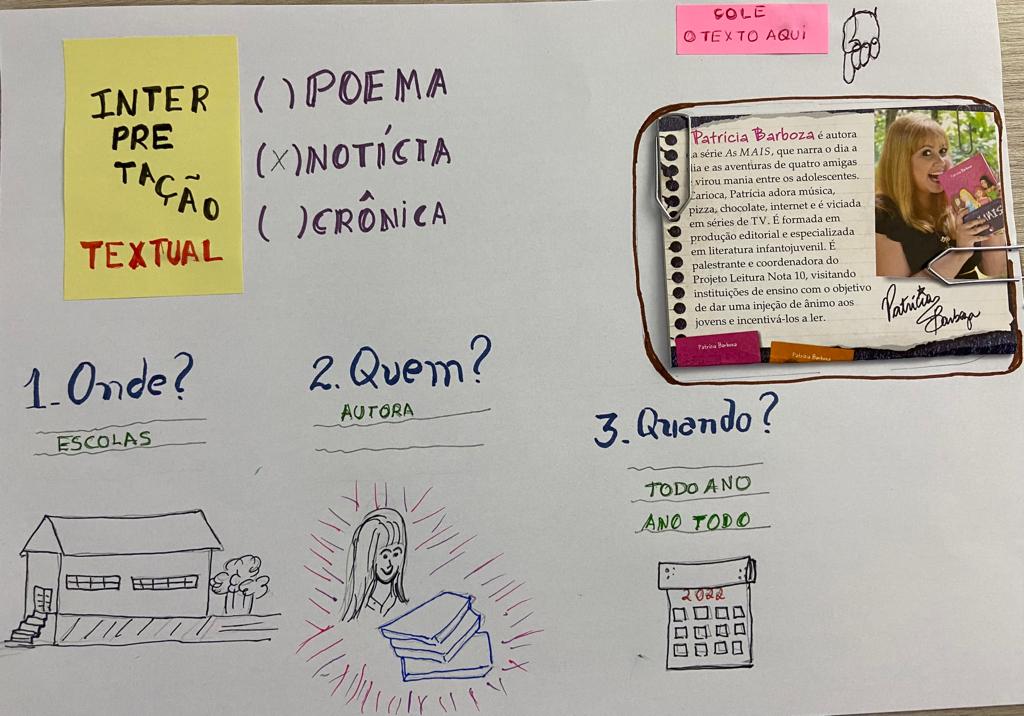 INTER
PRE
TAÇÃO
TEXTUAL
( ) POEMA
(X) NOTÍCIA
( ) CRÔNICA
COLE
O TEXTO AQUI
Patrícia Barboza é autora
a série As MAIS, que narra o dia a
lia e as aventuras de quatro amigas
virou mania entre os adolescentes.
Carioca, Patrícia adora música,
pizza, chocolate, internet e é viciada
em séries de TV. É formada em
produção editorial e especializada
em literatura infantojuvenil. É
palestrante e coordenadora do
Projeto Leitura Nota 10, visitando
instituições de ensino com o objetivo
de dar uma injeção de ânimo aos
jovens e incentivá-los a ler.
MAIS
Patrícia
Barboza
Patrícia Barboza
Patrícia Barboza
1. Onde?
ESCOLAS
2. Quem?
AUTORA
3. Quando?
TODO ANO
ANO TODO
2022